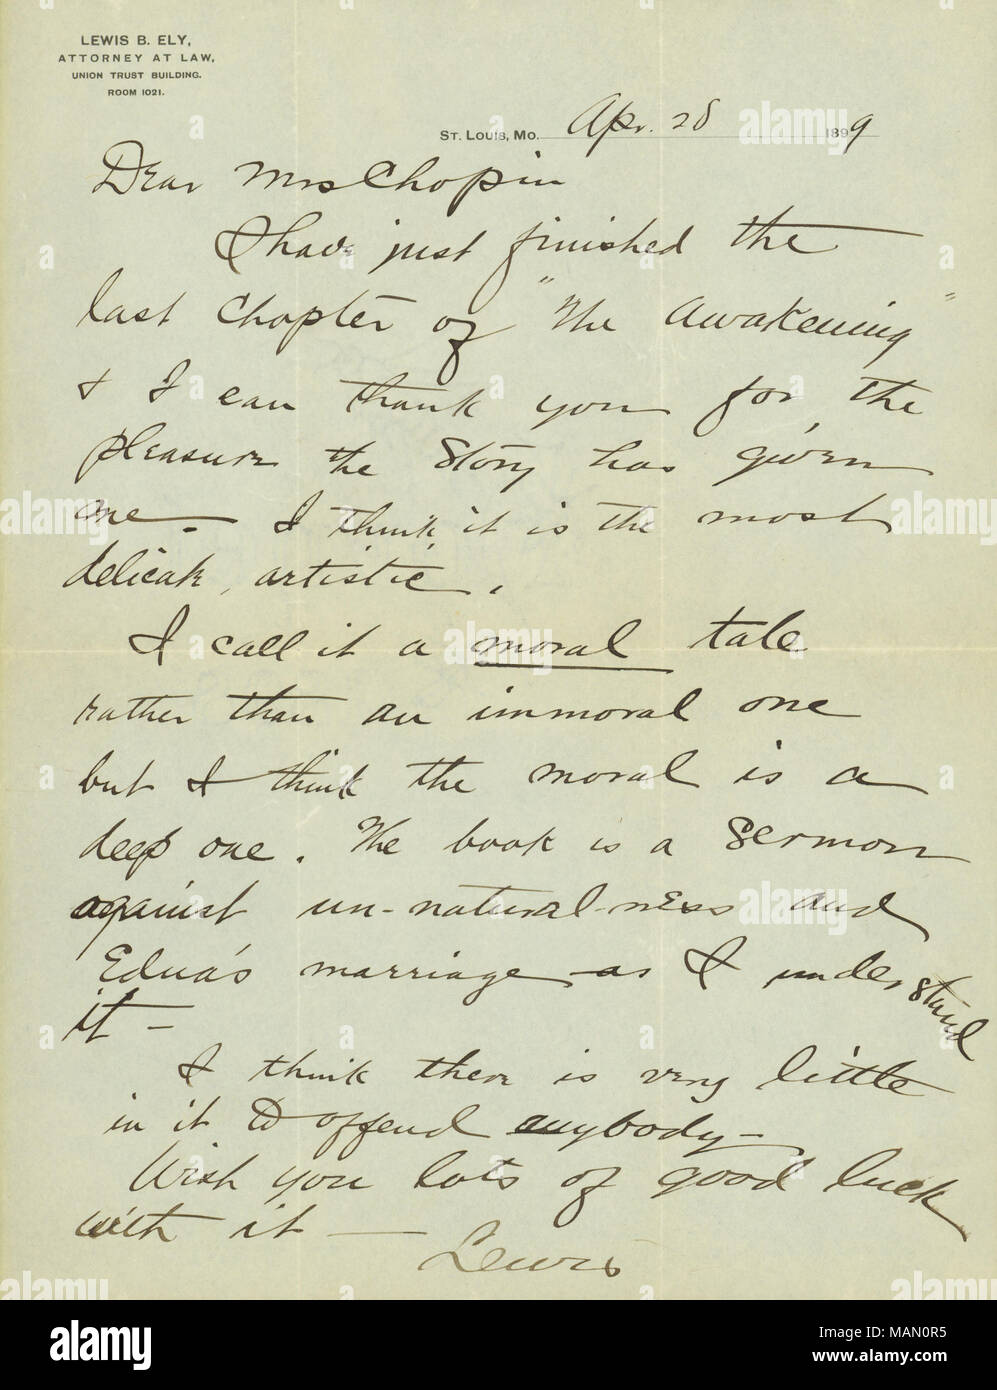 LEWIS B. ELY,
ATTORNEY AT LAW,
UNION TRUST BUILDING.
ROOM 1021.
ST. LOUIS, MO. Apr. 28 1899
Dear Mrs Chopin
I have just finished the
last chapter of "The Awakening"
& I can thank you for the
pleasure the story has given
me. I think it is the most
delicate, artistic.
I call it a moral tale
rather than an immoral one
but I think the moral is a
deep one. The book is a Sermon
against un-natural-ness and
Edna's marriage as I understand
it —
I think there is very little
in it to offend anybody —
Wish you lots of good luck
with it —
Lewis
alamy
Image ID: MAN0R5
www.alamy.com